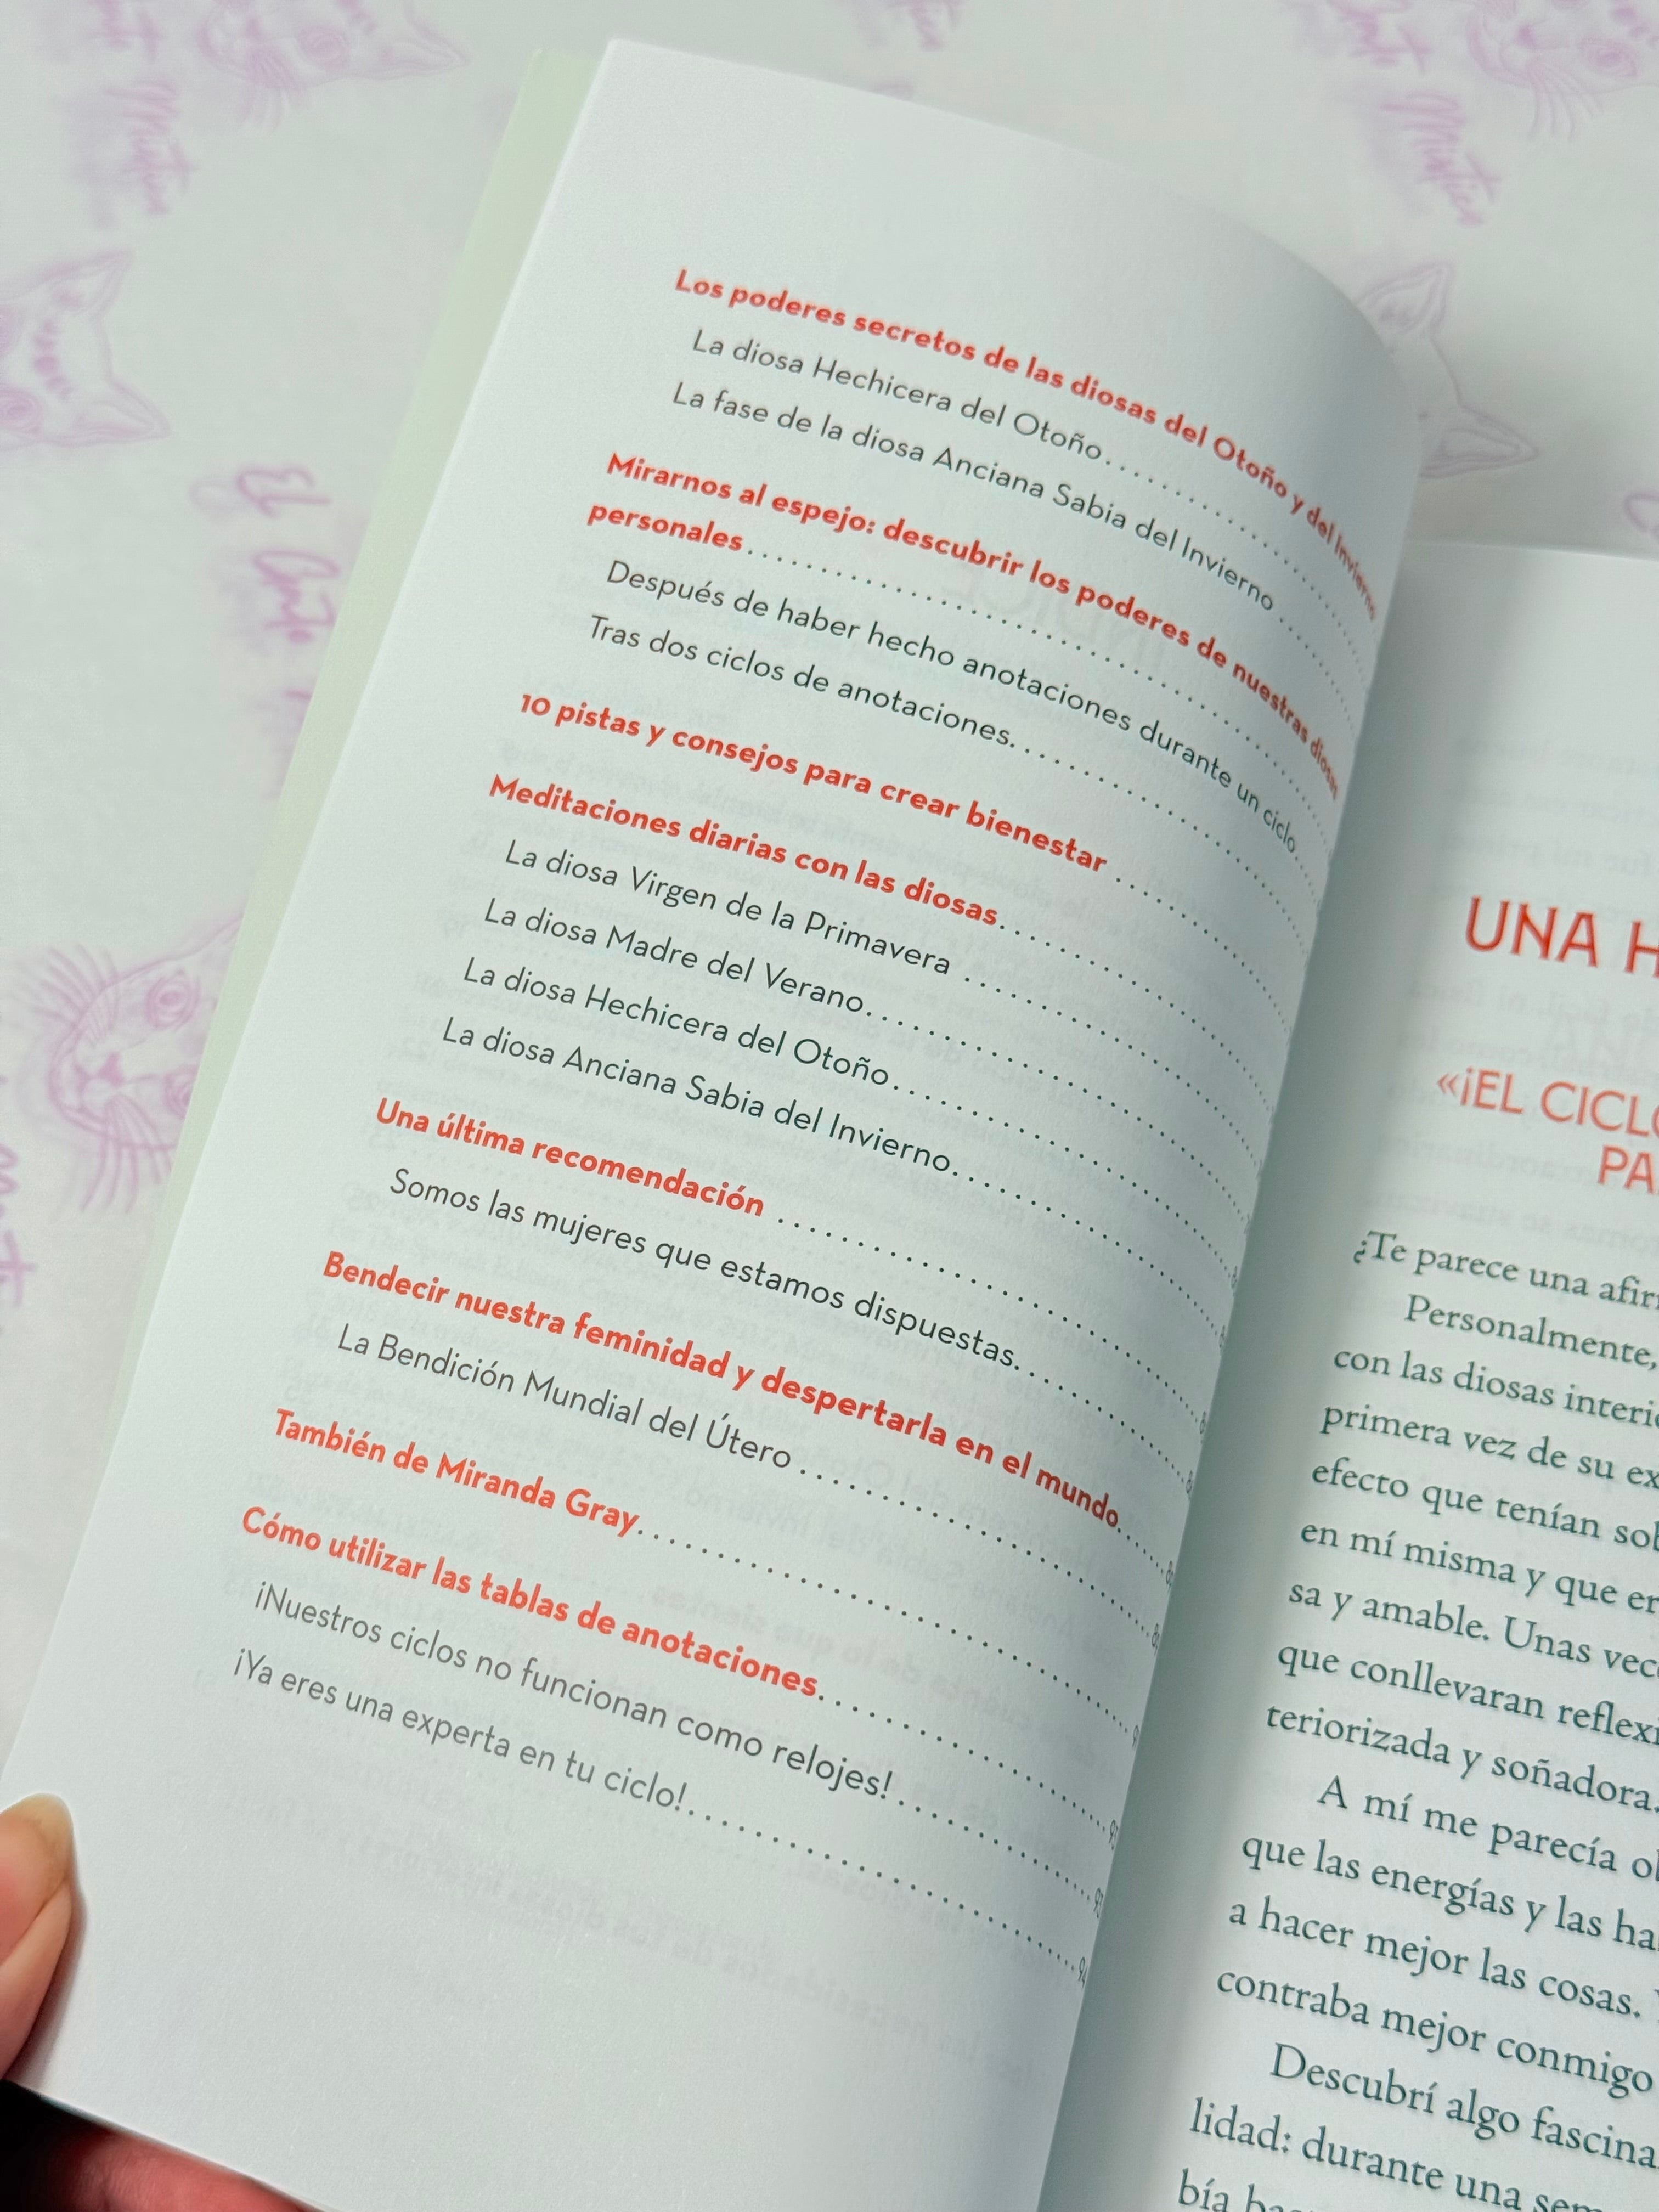 Los poderes secretos de las diosas del Otoño y del Invierno
La diosa Hechicera del Otoño
La fase de la diosa Anciana Sabia del Invierno
Mirarnos al espejo: descubrir los poderes de nuestras diosas
personales
Después de haber hecho anotaciones durante un ciclo
Tras dos ciclos de anotaciones
10 pistas y consejos para crear bienestar
Meditaciones diarias con las diosas
La diosa Virgen de la Primavera
La diosa Madre del Verano
La diosa Hechicera del Otoño
La diosa Anciana Sabia del Invierno
Una última recomendación
Somos las mujeres que estamos dispuestas
Bendecir nuestra feminidad y despertarla en el mundo
La Bendición Mundial del Útero
También de Miranda Gray
Cómo utilizar las tablas de anotaciones
¡Nuestros ciclos no funcionan como relojes!
¡Ya eres una experta en tu ciclo!
UNA H
«¡EL CICLO
PA
¿Te parece una afir
Personalmente,
con las diosas interi
primera vez de su ex
efecto que tenían sob
en mí misma y que er
sa y amable. Unas vec
que conllevaran reflexi
teriorizada y soñadora.
A mí me parecía ob
que las energías y las ha
a hacer mejor las cosas.
contraba mejor conmigo
Descubrí algo fascina
lidad: durante una sem
bía
El Gato
Místico